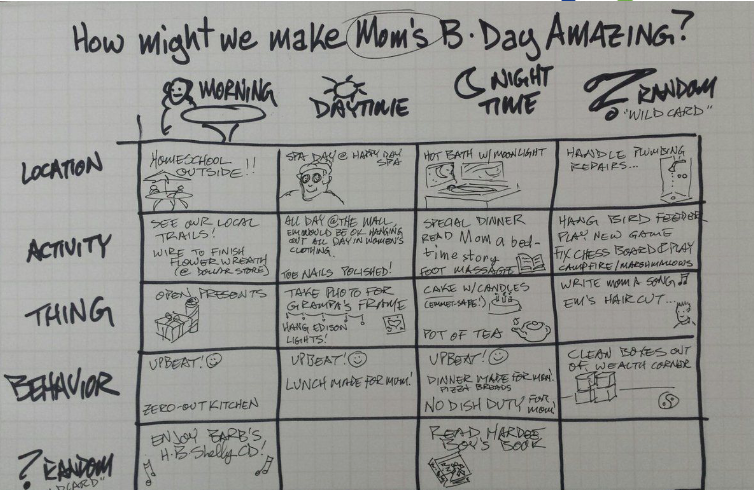 How might we make Mom's B·Day AMAZING?
MORNING
DAYTIME
NIGHT
TIME
? RANDOM
"WILD CARD"
LOCATION
HOMESCHOOL
OUTSIDE!!
SPA DAY @ HAPPY DAY
SPA
HOT BATH W/MOONLIGHT
HANDLE PLUMBING
REPAIRS...
ACTIVITY
SEE OUR LOCAL
TRAILS!
WIRE TO FINISH
FLOWER WREATH
(@ DOLLAR STORE)
ALL DAY @ THE MALL.
EM WOULD BE OK HANGING
OUT ALL DAY IN WOMEN'S
CLOTHING.
TOE NAILS POLISHED!
SPECIAL DINNER
READ Mom a bed-
time story
FOOT MASSAGE
HANG BIRD FEEDER
PLAY NEW GAME
FIX CHESS BOARD & PLAY
CAMPFIRE/MARSHMALLOWS
THING
OPEN PRESENTS
TAKE PHOTO FOR
GRAMPA'S FRAME
HANG EDISON
LIGHTS!
CAKE W/CANDLES
(EMMET-SAFE!)
POT OF TEA
WRITE MOM A SONG
EM'S HAIRCUT...
BEHAVIOR
UPBEAT!
ZERO-OUT KITCHEN
UPBEAT!
LUNCH MADE FOR MOM!
UPBEAT!
DINNER MADE FOR MOM!
PIZZA BREADS
NO DISH DUTY FOR
MOM!
CLEAN BOXES OUT
OF WEALTH CORNER
? RANDOM
ENJOY BARB'S
H·B Shelly CD!
READ HARDEE
BOY'S BOOK